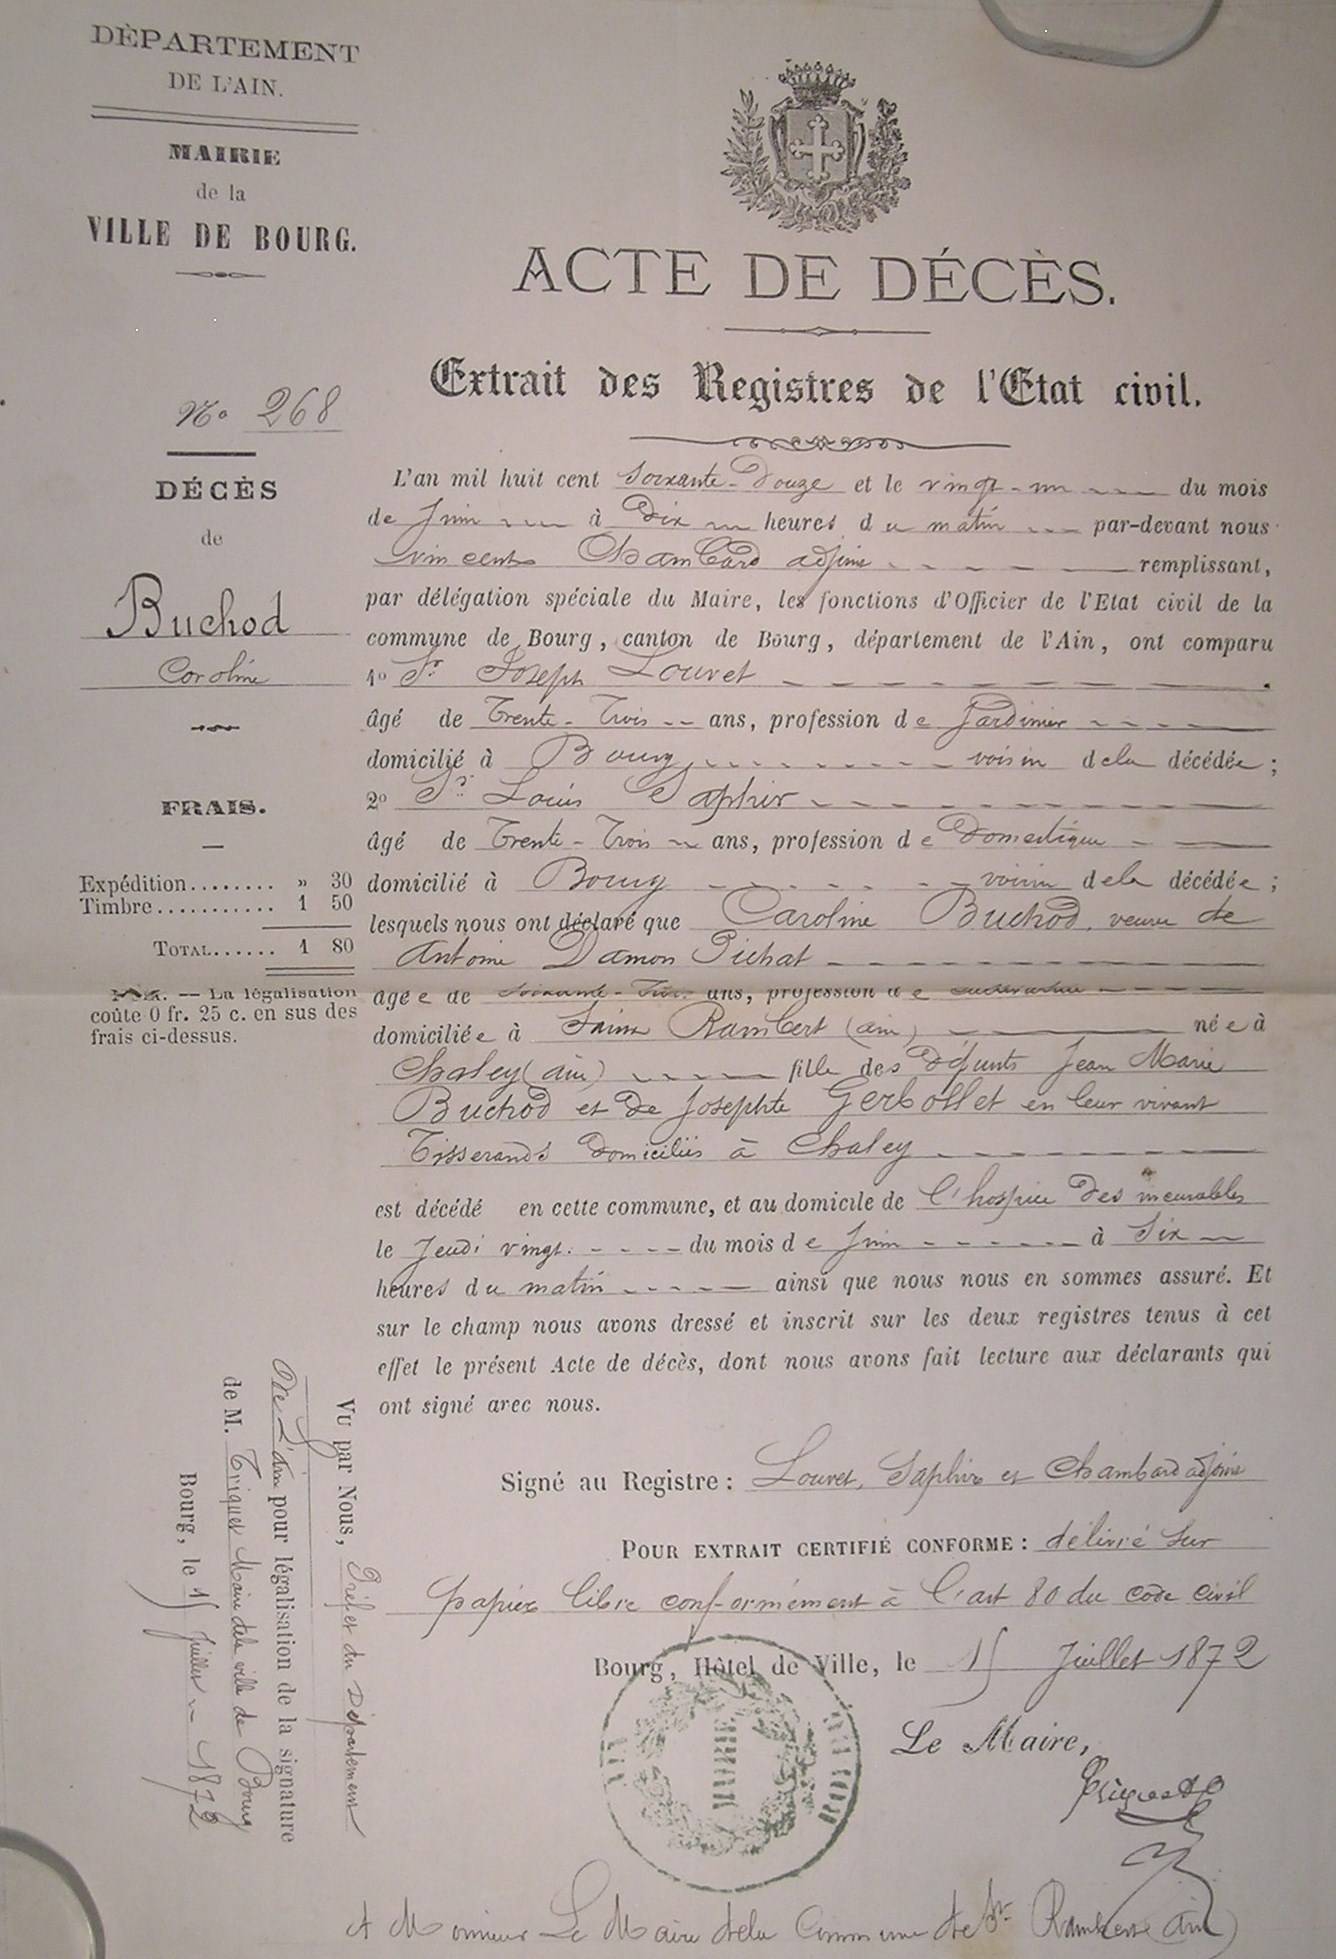 DÈPARTEMENT
DE L'AIN.
MAIRIE
de la
VILLE DE BOURG.
ACTE DE DÉCÈS.
Extrait des Registres de l'Etat civil.
No 268
DÉCÈS
de
Buchod
Caroline
FRAIS.
Expédition........ » 30
Timbre........... 1 50
TOTAL...... 1 80
La légalisation
coûte 0 fr. 25 c. en sus des
frais ci-dessus.
L'an mil huit cent soixante-Douze et le vingt-un du mois
de Juin à Dix heures du matin par-devant nous
vincent Chambard adjoint remplissant,
par délégation spéciale du Maire, les fonctions d'Officier de l'Etat civil de la
commune de Bourg, canton de Bourg, département de l'Ain, ont comparu
1o Sr Joseph Louvet
âgé de Trente-Trois ans, profession de Jardinier
domicilié à Bourg voisin dela décédée;
2o Sr Louis Saphir
âgé de Trente-Trois ans, profession de Domestique
domicilié à Bourg voisin dela décédée;
lesquels nous ont déclaré que Caroline Buchod, veuve de
Antoine Damon Pichat
agée de soixante- ans, profession de
domiciliée à Saint Rambert (ain) née à
Chaley (ain) fille des Défunts Jean Marie
Buchod et de Josephte Gerbollet en leur vivant
Tisserands Domiciliés à Chaley
est décédé en cette commune, et au domicile de l'hospice Des incurables
le Jeudi vingt du mois de Juin à Six
heures du matin ainsi que nous nous en sommes assuré. Et
sur le champ nous avons dressé et inscrit sur les deux registres tenus à cet
effet le présent Acte de décès, dont nous avons fait lecture aux déclarants qui
ont signé avec nous.
Signé au Registre : Louvet, Saphir et Chambard adjoint
POUR EXTRAIT CERTIFIÉ CONFORME : délivré sur
papier libre conformément à l'art 80 du code civil
Bourg, Hôtel de Ville, le 15 Juillet 1872
Le Maire,
MAIRIE
Vu par Nous, Préfet du Département
De L'ain pour légalisation de la signature
de M. Triquet Maire dela ville de Bourg
Bourg, le 15 Juillet 1872
A Monsieur Le Maire dela Commune de St Rambert (ain)